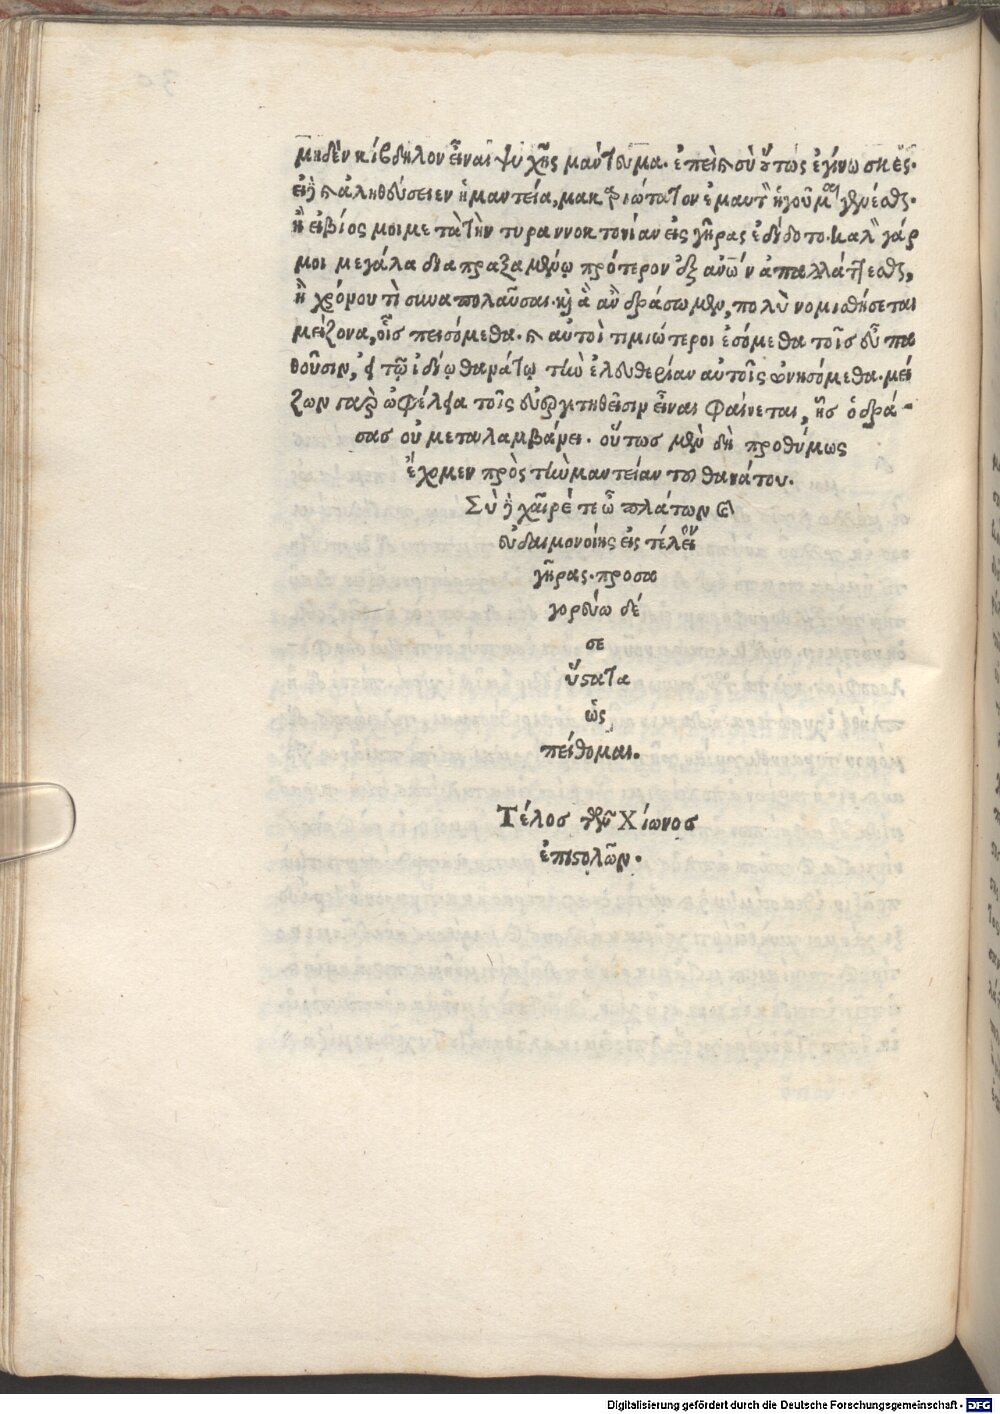 μηδὲν κίβδηλον εἶναι ψυχῆς μάντευμα. ἐπεὶ καὶ σὺ οὕτως ἐγίνωσκες.
εἰ δὲ καὶ ἀληθεύσειεν ἡ μαντεία, μακαριώτατον ἐμαυτὸν ἡγοῦμαι γενέσθαι.
ἢ εἰ βίος μοι μετὰ τὴν τυραννοκτονίαν εἰς γῆρας ἐδίδοτο. καλὸν γάρ
μοι μεγάλα διαπραξαμένῳ πρότερον ἐξ ἀνθρώπων ἀπαλλάττεσθαι,
ἢ χρόνου τὶ συναπολαῦσαι. καὶ ἃ ἂν δράσωμεν, πολὺ νομισθήσεται
μείζονα, οἷς πεισόμεθα. καὶ αὐτοὶ τιμιώτεροι ἐσόμεθα τοῖς εὖ πα
θοῦσιν, εἰ τῷ ἰδίῳ θανάτῳ τὴν ἐλευθερίαν αὐτοῖς ὠνησόμεθα. μεί
ζων γὰρ ὠφέλεια τοῖς εὐεργετηθεῖσιν εἶναι φαίνεται, ἧς ὁ δρά-
σας οὐ μεταλαμβάνει. οὕτως μὲν δὴ προθύμως
ἔχομεν πρὸς τὴν μαντείαν τοῦ θανάτου.
Σὺ δὲ χαῖρέ τε ὦ πλάτων καὶ
εὐδαιμονοίης εἰς τέλειον
γῆρας. προσα
γορεύω δέ
σε
ὕστατα
ὡς
πείθομαι.
Τέλος τῶν Χίωνος
ἐπιστολῶν.
Digitalisierung gefördert durch die Deutsche Forschungsgemeinschaft - DFG